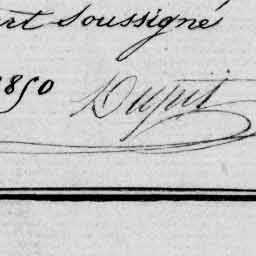 rt soussigné
1850 Dupuis